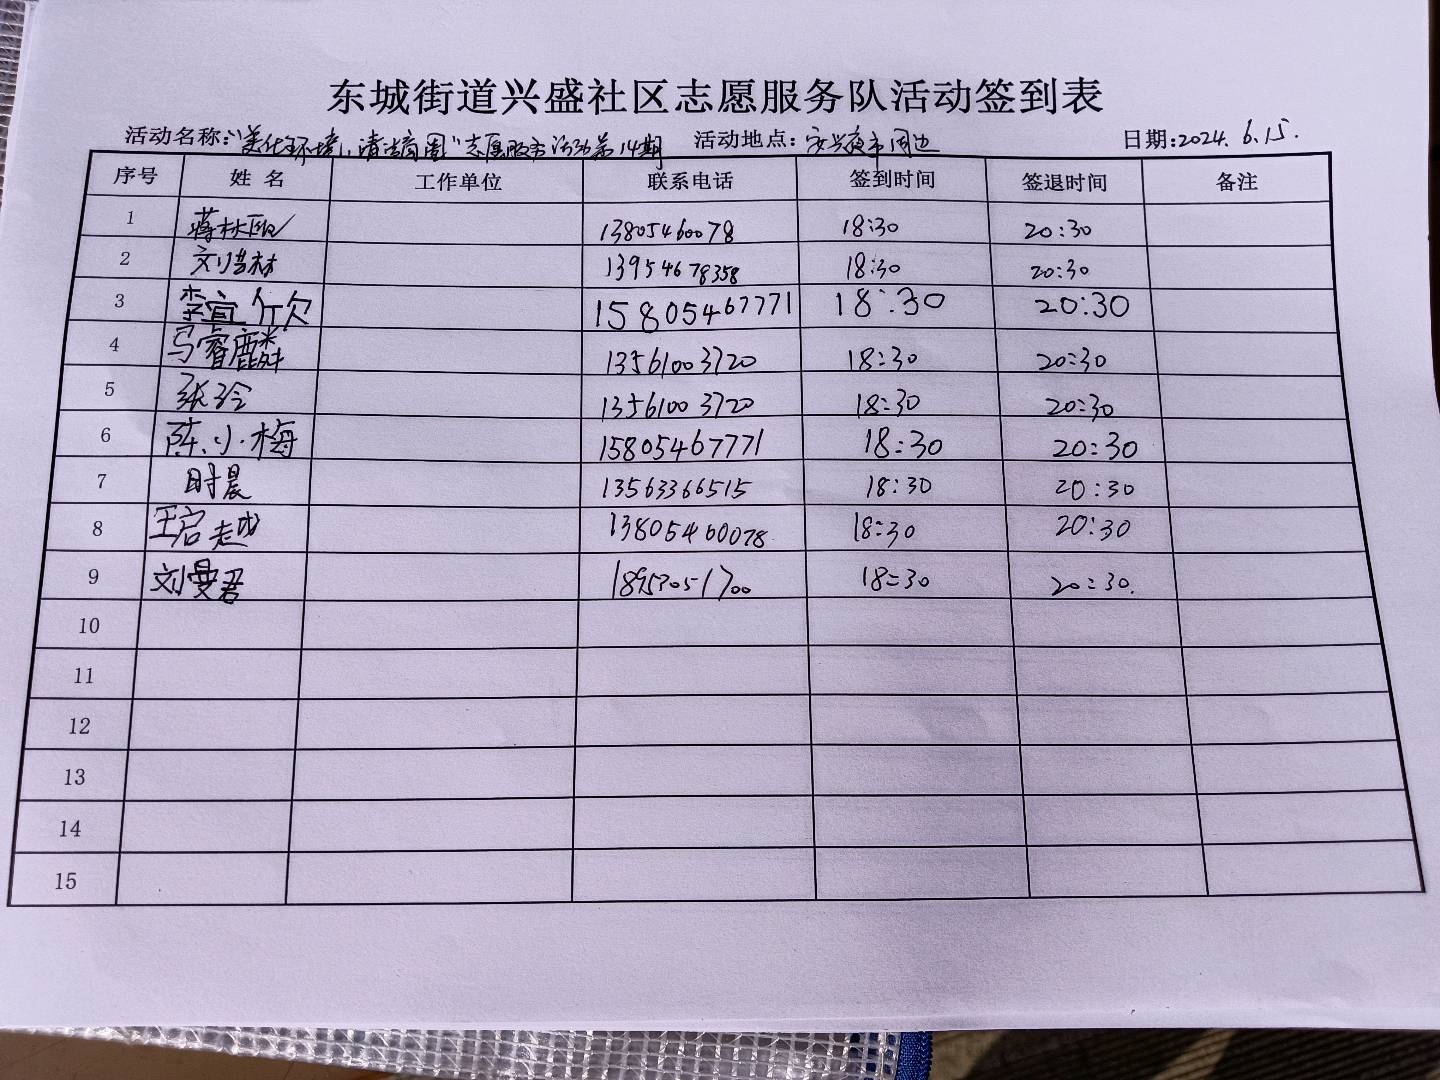 东城街道兴盛社区志愿服务队活动签到表
活动名称:"美化环境,清洁商圈"志愿服务活动第14期 活动地点:安兴夜市周边 日期:2024.6.15.
序号 姓名 工作单位 联系电话 签到时间 签退时间 备注
1 蒋林 13805460078 18:30 20:30
2 刘浩林 13954678358 18:30 20:30
3 李宜 15805467771 18:30 20:30
4 马睿麟 13561003720 18:30 20:30
5 张玲 13561003720 18:30 20:30
6 陈小梅 15805467771 18:30 20:30
7 时晨 13563366515 18:30 20:30
8 王启越 13805460078 18:30 20:30
9 刘曼君 18953051700 18:30 20:30.
10
11
12
13
14
15